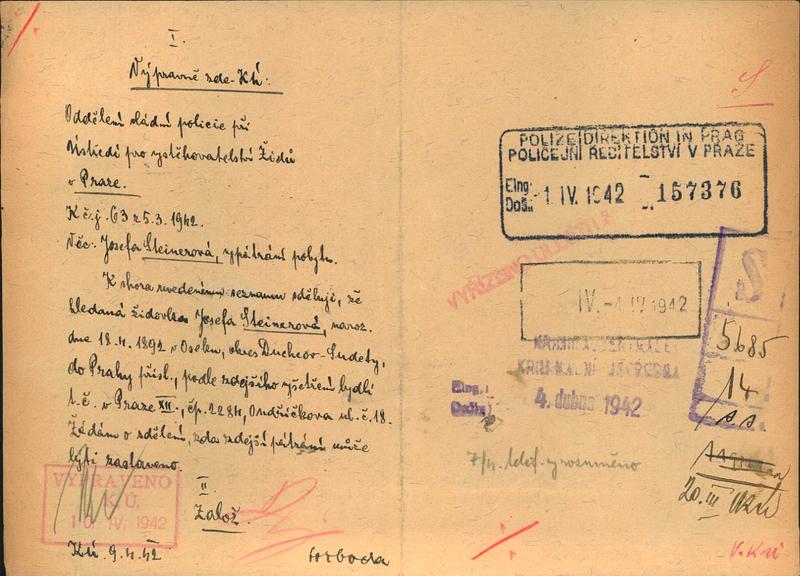 I.
Výpravně zde-Kú:
Oddělení vládní policie při
Ústředí pro vystěhovalectví Židů
v Praze.
K č.j. 63 z 5.3. 1942.
Věc: Josefa Steinerová, vypátrání pobytu.
K shora uvedenému seznamu sděluji, že
hledaná židovka Josefa Steinerová, naroz.
dne 18.4. 1892 v Oseku, okres Duchcov-Sudety,
do Prahy přísl., podle zdejšího vyšetření bydlí
t.č. v Praze XII., čp. 2284, Ondříčkova ul. č. 18.
Žádám o sdělení, zda zdejší pátrání může
býti zastaveno.
II
Založ.
VYPRAVENO
K.Ú.
10. IV. 1942
Kú. 9.4.42
S
POLIZEIDIREKTION IN PRAG
POLICEJNÍ ŘEDITELSTVÍ V PRAZE
Eing.
Došlo
-1. IV. 1942
157376
IV. -1. IV. 1942
KRIMINALZENTRALE
KRIMINÁLNÍ ÚSTŘEDNA
Eing.:
Došlo:
4. dubna 1942
S
5685
14
7/4. telef. vyrozuměno
20. III
V. Kú